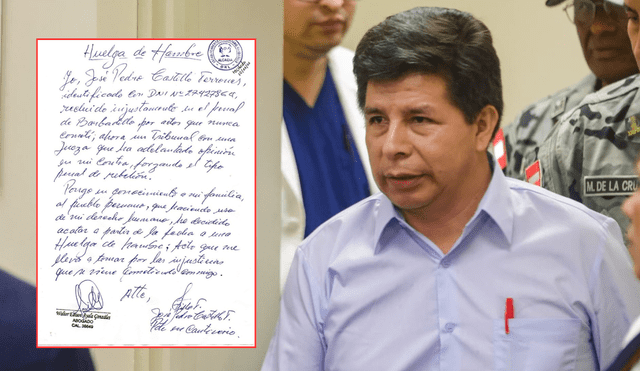 Huelga de Hambre
Yo, José Pedro Castillo Terrones,
identificado con DNI Nº 27427864,
recluido injustamente en el penal
de Barbadillo por actos que nunca
cometí, ahora un Tribunal con una
Jueza que ha adelantado opinión
en mi contra, forzando el tipo
penal de rebelión.
Pongo en conocimiento a mi familia,
al pueblo peruano, que haciendo uso
de mi derecho humano, he decidido
acatar a partir de la fecha a una
Huelga de hambre; Acto que me
llevó a tomar por las injusticias
que se viene cometiendo conmigo.
Atte,
José Pedro Castillo T.
Walter Edison Ayala Gonzales
ABOGADO
CAL. 36649
M. DE LA CRU